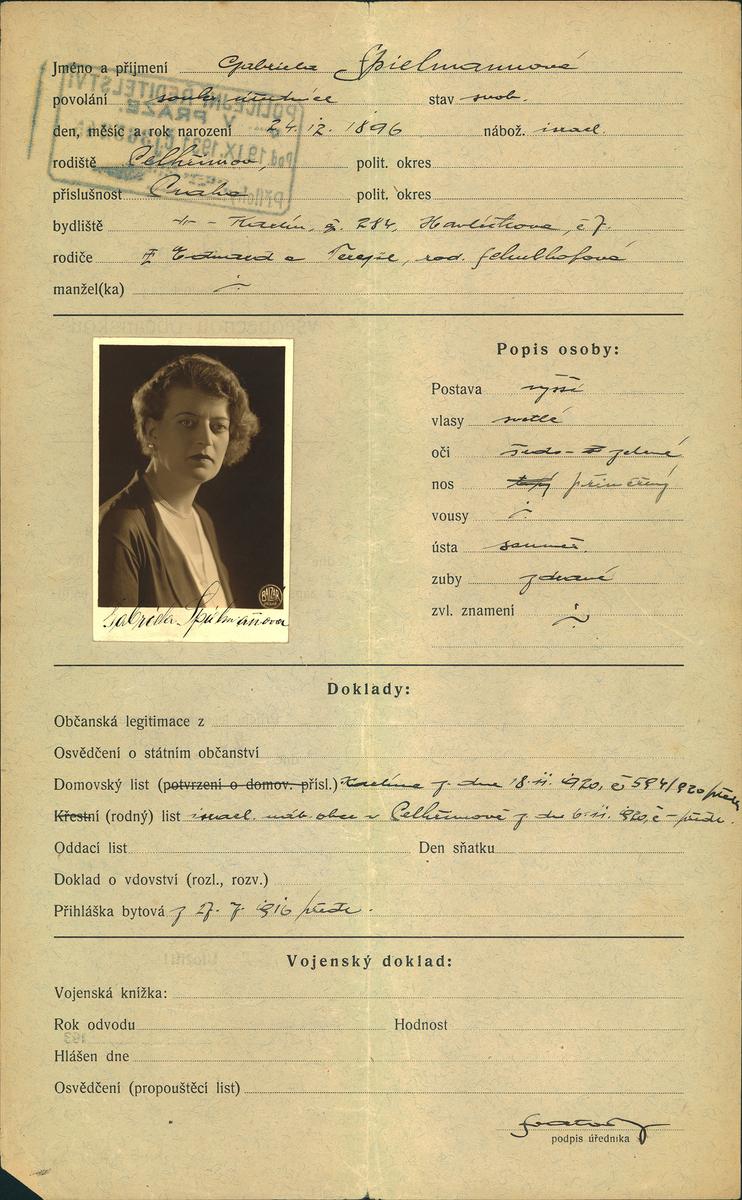 Jméno a příjmení Gabriela Spielmannová
povolání soukr. úřednice stav svob.
den, měsíc a rok narození 24. 12. 1896 nábož. israel.
rodiště Pelhřimov, polit. okres
příslušnost Praha polit. okres
bydliště Karlín, č. 284, Havlíčkova, č 7.
rodiče Eduard a Terezie, roz. Schulhofová
manžel(ka)
Popis osoby:
Postava vyšší
vlasy světlé
oči šedo-zelené
nos přiměřený
vousy
ústa souměr.
zuby zdravé
zvl. znamení
BALZAR
Gabriela Spielmannová
Doklady:
Občanská legitimace z
Osvědčení o státním občanství
Domovský list (potvrzení o domov. přísl.) Karlína z dne 18. II. 1920, č 594/920
Křestní (rodný) list israel. náb. obce v Pelhřimově z dne 6. II. 1920, č –
Oddací list Den sňatku
Doklad o vdovství (rozl., rozv.)
Přihláška bytová z 27. 7. 1916
Vojenský doklad:
Vojenská knížka:
Rok odvodu Hodnost
Hlášen dne
Osvědčení (propouštěcí list)
podpis úředníka